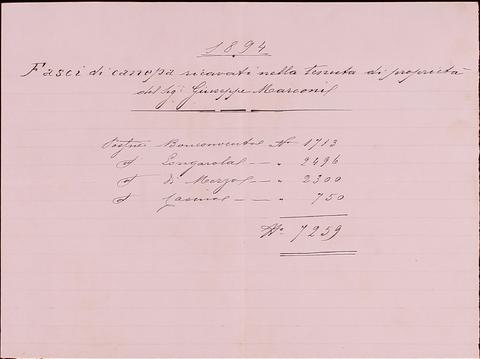 1894
Fasci di canepa ricavati nella tenuta di proprietà
del Sig. Giuseppe Marconi
Bonconvento N. 1713
" Longarola — " 2496
" di Mezzo — " 2300
" Casino — " 750
N. 7259